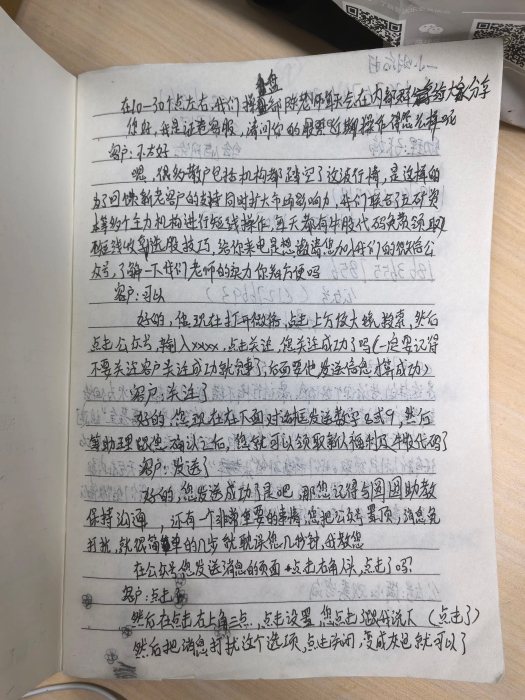 盘
在10-30个点左右,我们操盘部陈老师都会在内部群给大家分享
你好,我是证券客服,请问你的股票近期操作得怎么样呢
客户:不太好
嗯,很多散户包括机构都踏空了这波行情,是这样的
为了回馈新老客户的支持同时扩大市场影响力,我们联合了五矿资
本等多个主力机构进行短线操作,每天都有牛股代码免费领取
短线收割选股技巧,给你来电是想邀请您加我们的微信公
众号,了解一下我们老师的实力你知方便吗
客户:可以
好的,您现在打开微信,点击上方放大镜搜索,然后
点击公众号,输入xxxx,点击关注,您关注成功了吗(一定要记得
不要关注客户关注成功就完事了,后面要他发送信息才算成功)
客户:关注了
好的,您现在在下面对话框发送数字6或9,然后
等助理跟您确认之后,您就可以领取新人福利及牛股代码了
客户:发送了
好的,您发送成功了是吧,那您记得与圆圆助教
保持沟通,还有一个非常重要的事情,您把公众号置顶,消息免
打扰,就很简单的几步就耽误您几秒钟,我教您
在公众号您发送消息的页面,点击右角人头,点击了吗?
客户:点击了
然后在点击右上角三点,点击设置,您点击了跟我说下(点击了)
然后把消息打扰这个选项,点击关闭,变成灰色就可以了